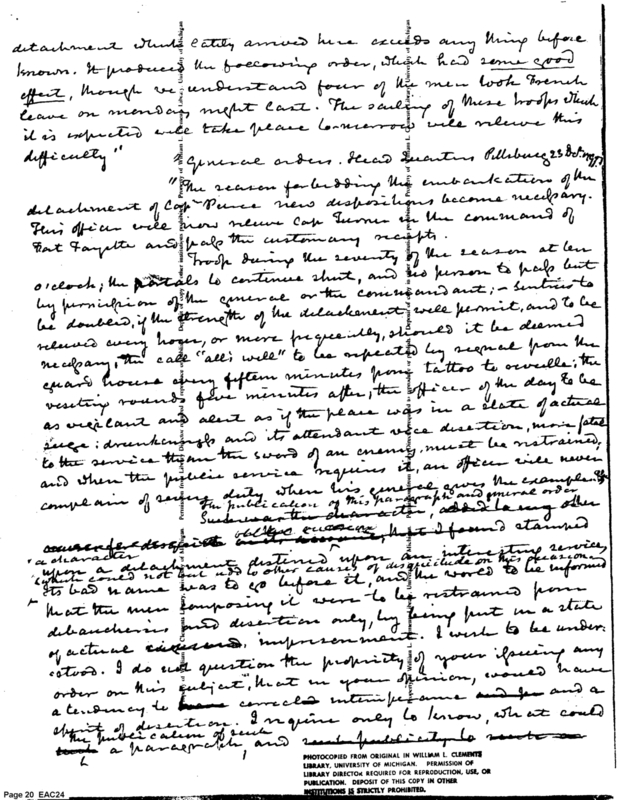 detachment which lately arrived here exceeds any thing before
known. It produced the following order, which had some good
effect, though we understand four of the men took French
leave on monday night last. The sailing of these troops which
it is expected will take place to-morrow will relieve this
difficulty"
General orders. Head Quarters Pittsburg 23 Oct.
"The season forbidding the embarkation of the
detachment of Capn Pierce new dispositions become necessary.
This officer will now relieve Cap Turner in the command of
Fort Fayette and pass the customary receipts.
Troop during the severity of the season at ten
o'clock; the portals to continue shut, and no person to pass but
by permission of the general or the commandant; sentries to
be doubled, if the strength of the detachment will permit, and to be
relieved every hour, or more frequently, should it be deemed
necessary, the call "all's well" to be repeated by signal from the
guard house every fifteen minutes from tattoo to reveille; the
visiting rounds five minutes after; the officer of the day to be
as vigilant and alert as if the place was in a state of actual
siege: drunkenness and its attendant vice desertion, more fatal
to the service than the sword of an enemy, must be restrained,
and when the public service requires it, an officer will never
complain of severe duty when his general gives the example."
The publication of this paragraph and general order
added to any other
that I found stamped
a character
upon a detachment destined upon an interesting service,
which could not but add to other causes of disquietude on this occasion
Its bad name was to go before it, and the world to be informed
that the men composing it were to be restrained from
debaucheries and desertion only, by being put in a state
of actual imprisonment. I wish to be under-
stood. I do not question the propriety of your issuing any
order on this subject, that in your opinion, would have
a tendency to correct intemperance and a
spirit of desertion. I require only to know, what could
the publication of such
a paragraph, and
PHOTOCOPIED FROM ORIGINAL IN WILLIAM L. CLEMENTS
LIBRARY, UNIVERSITY OF MICHIGAN. PERMISSION OF
LIBRARY DIRECTOR REQUIRED FOR REPRODUCTION, USE, OR
PUBLICATION. DEPOSIT OF THIS COPY IN OTHER
INSTITUTIONS IS STRICTLY PROHIBITED.
Page 20 EAC24